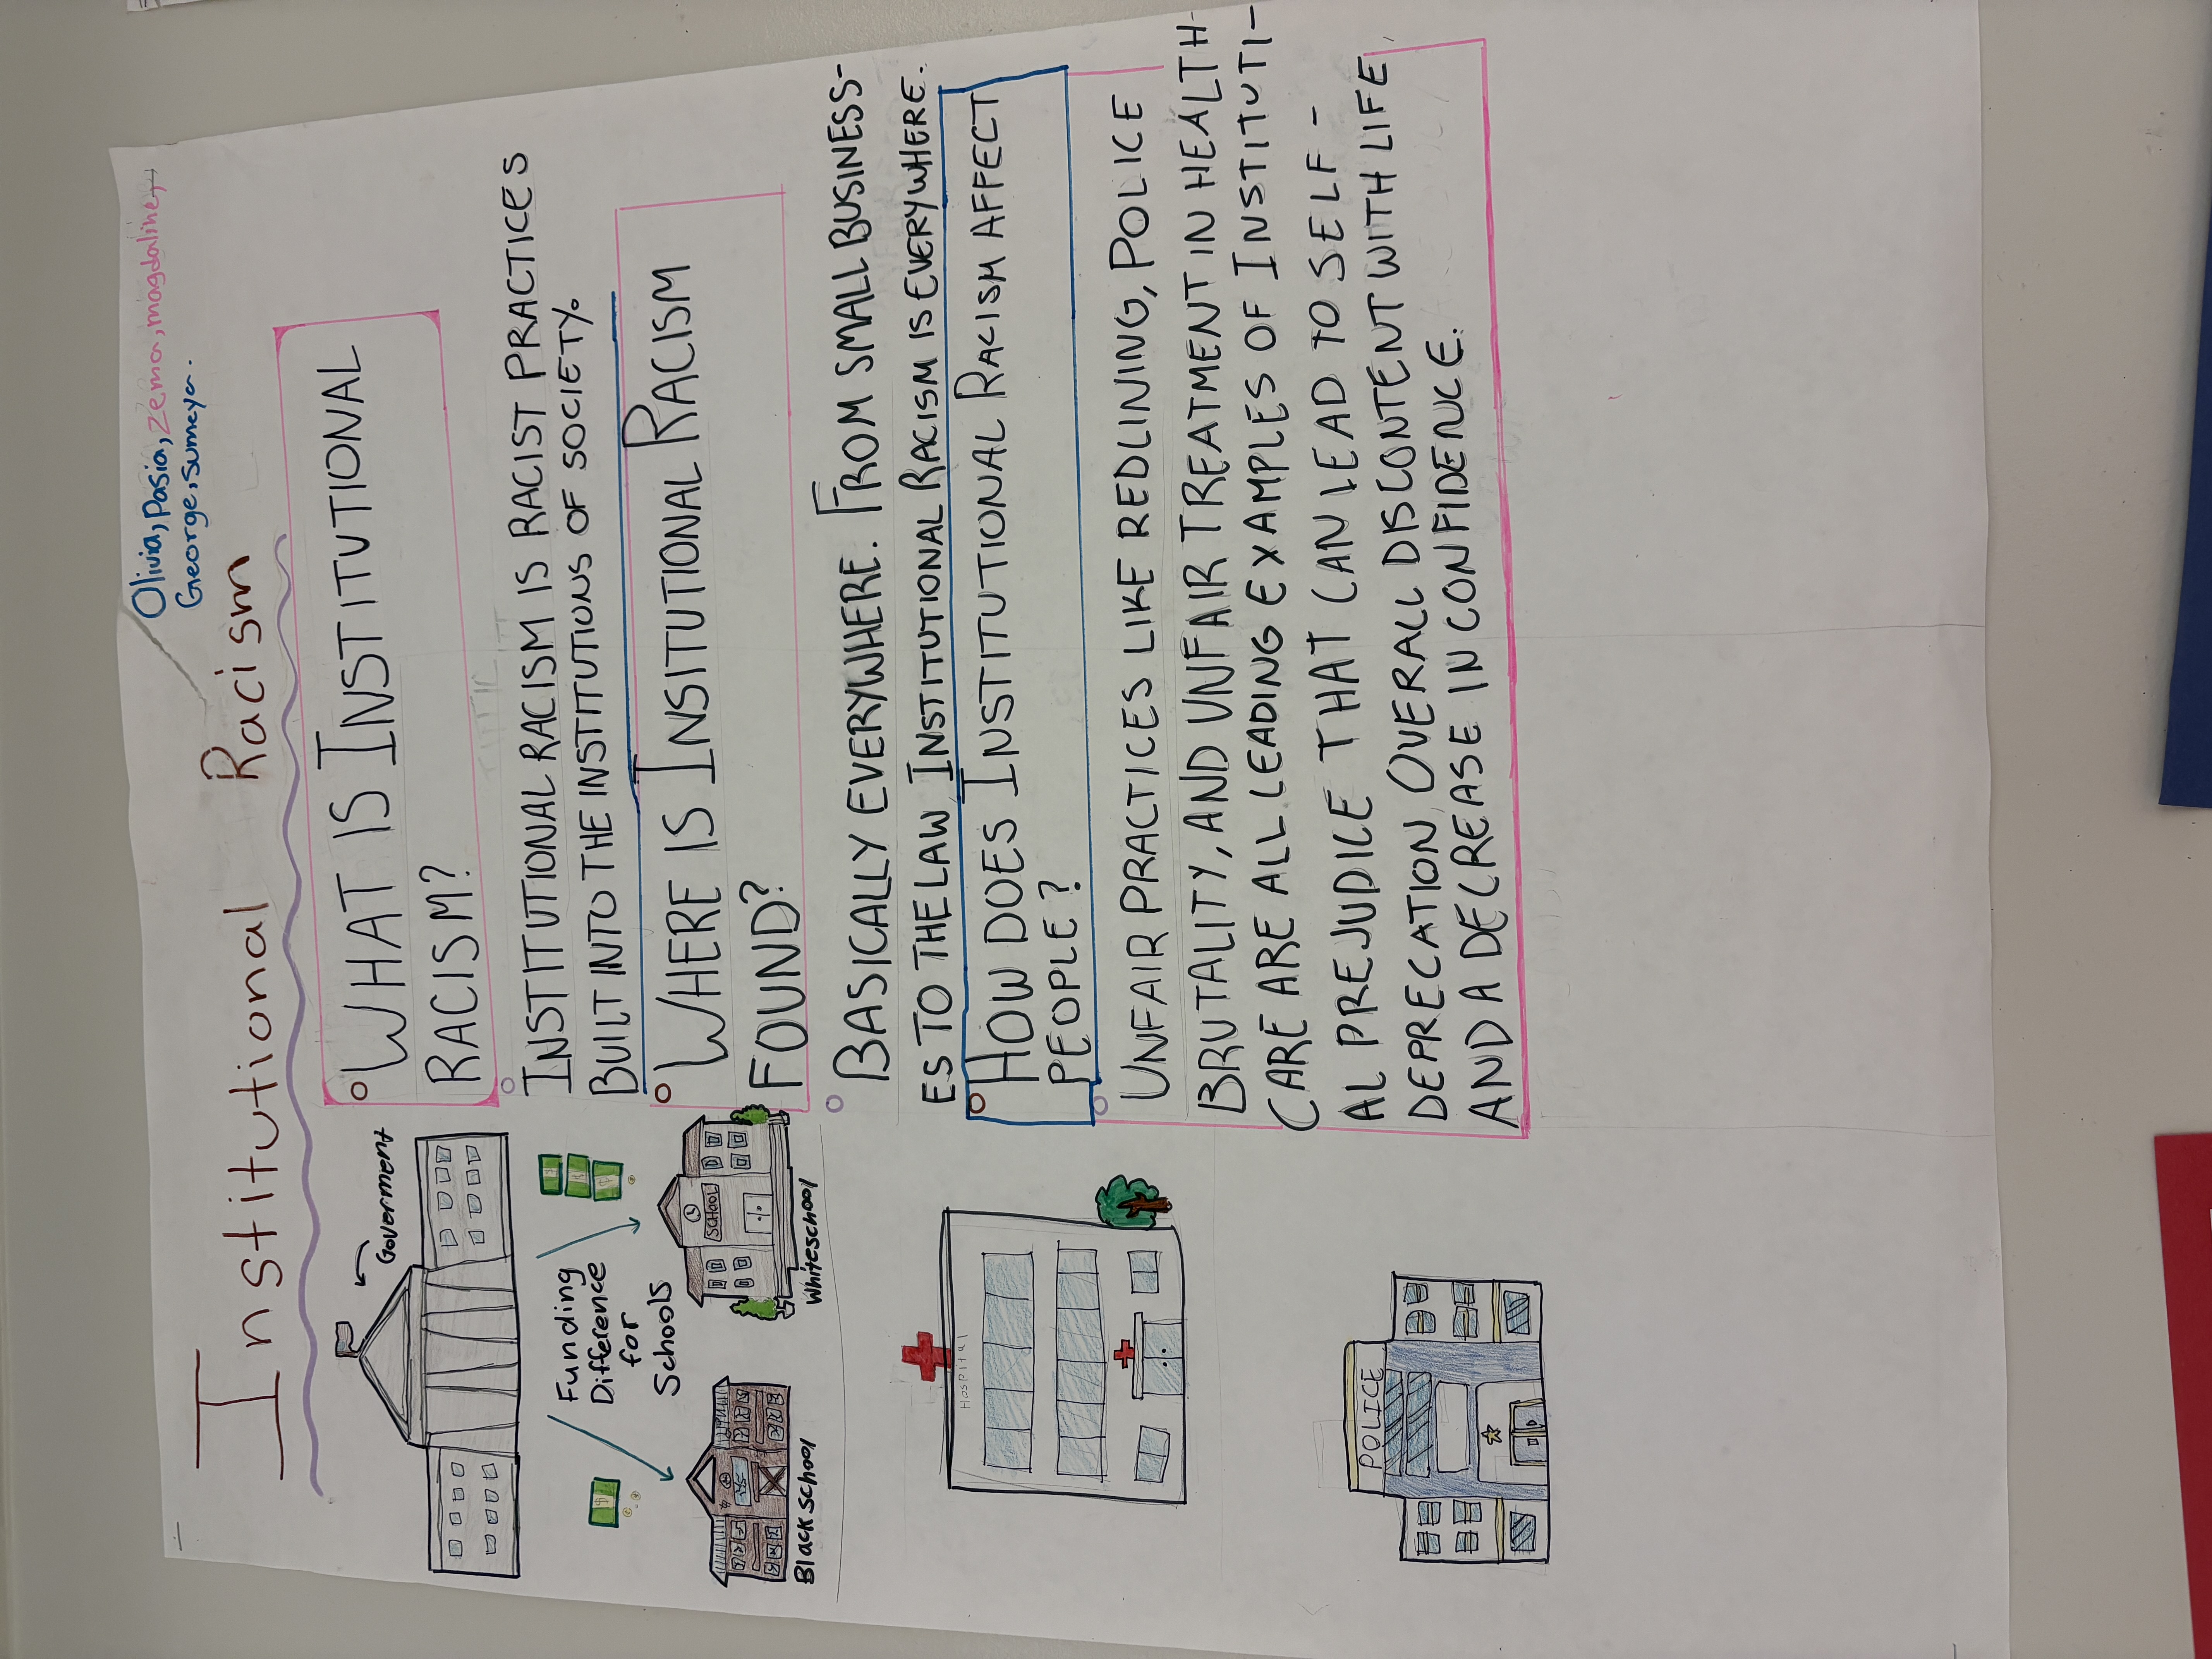 Olivia, Pasia, Zema, magdaline,
George, Sumeya.
Institutional Racism
WHAT IS INSTITUTIONAL
RACISM?
INSTITUTIONAL RACISM IS RACIST PRACTICES
BUILT INTO THE INSTITUTIONS OF SOCIETY.
WHERE IS INSITUTIONAL RACISM
FOUND?
BASICALLY EVERYWHERE. FROM SMALL BUSINESS-
ES TO THE LAW, INSTITUTIONAL RACISM IS EVERYWHERE.
HOW DOES INSTITUTIONAL RACISM AFFECT
PEOPLE?
UNFAIR PRACTICES LIKE REDLINING, POLICE
BRUTALITY, AND UNFAIR TREATMENT IN HEALTH-
CARE ARE ALL LEADING EXAMPLES OF INSTITUTI-
AL PREJUDICE THAT CAN LEAD TO SELF-
DEPRECATION, OVERALL DISCONTENT WITH LIFE,
AND A DECREASE IN CONFIDENCE.
Goverment
Funding
Difference
for
Schools
SCHOOL
Black school
Whiteschool
HOSPITAL
POLICE